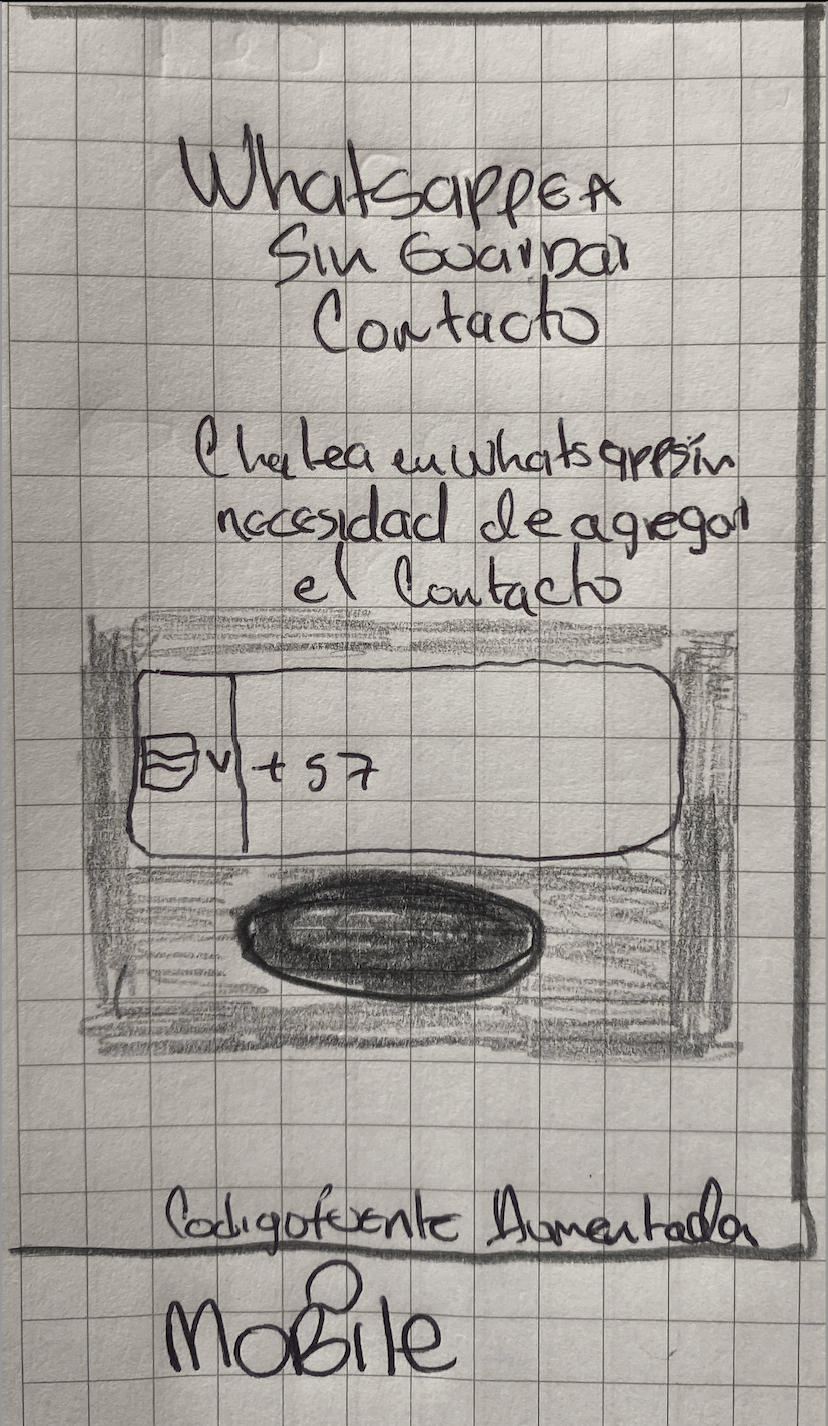 Whatsappea
Sin Guardar
Contacto
Chatea en whatsapp sin
necesidad de agregar
el Contacto
+57
Codigo fuente Aumentada
Mobile